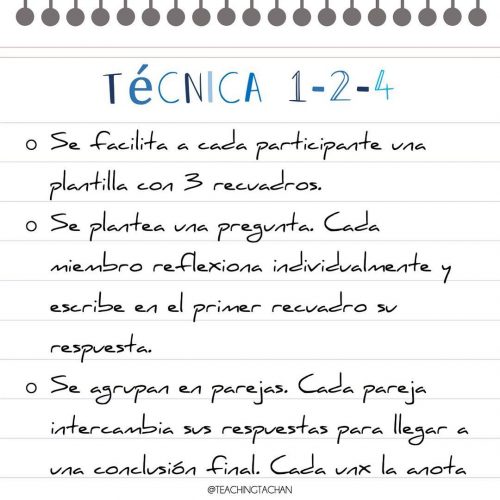 TéCNICA 1-2-4
o Se facilita a cada participante una
plantilla con 3 recuadros.
o Se plantea una pregunta. Cada
miembro reflexiona individualmente y
escribe en el primer recuadro su
respuesta.
o Se agrupan en parejas. Cada pareja
intercambia sus respuestas para llegar a
una conclusión final. Cada unx la anota
@TEACHINGTACHAN